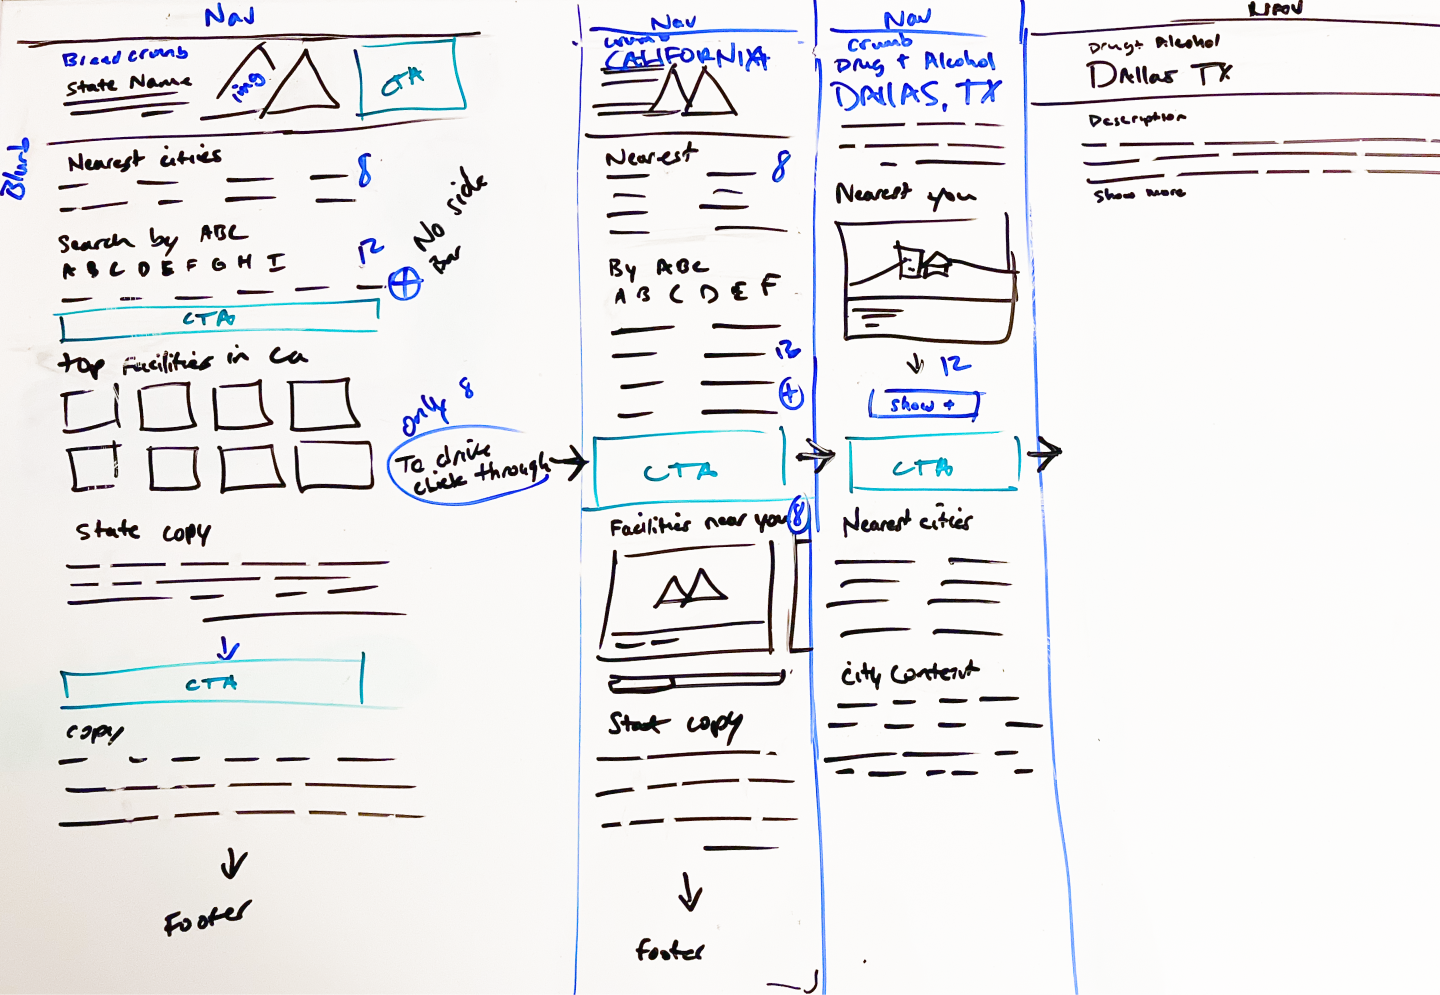 Nav
Breadcrumb
State Name
img
CTA
Blurb
Nearest cities
8
Search by ABC
A B C D E F G H I
12
+
No side
Bar
CTA
top facilities in ca
only 8
To drive
click through
State copy
CTA
copy
Footer
Nav
crumb
CALIFORNIA
Nearest
8
By ABC
A B C D E F
12
+
CTA
Facilities near you
8
State copy
footer
Nav
crumb
Drug + Alcohol
DALLAS, TX
Nearest you
12
show +
CTA
Nearest cities
city content
Drug + Alcohol
Dallas TX
Description
Show more